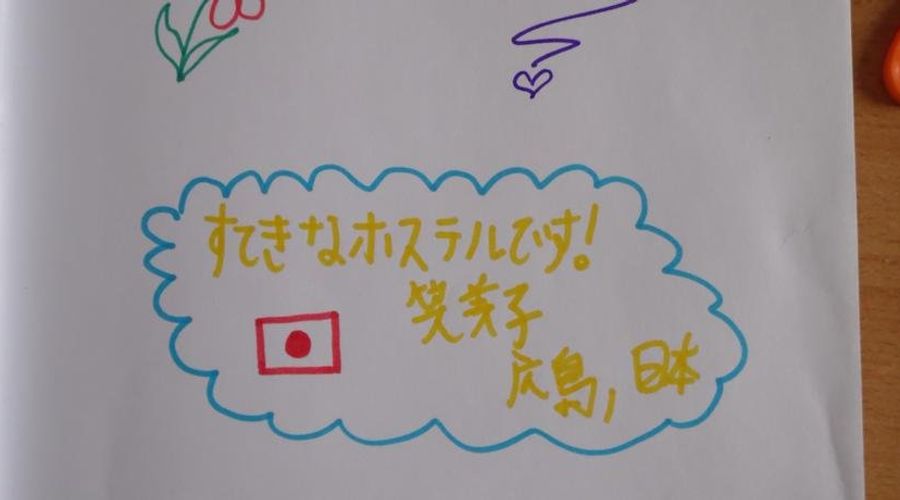 すてきなホステルです!
笑美子
広島, 日本